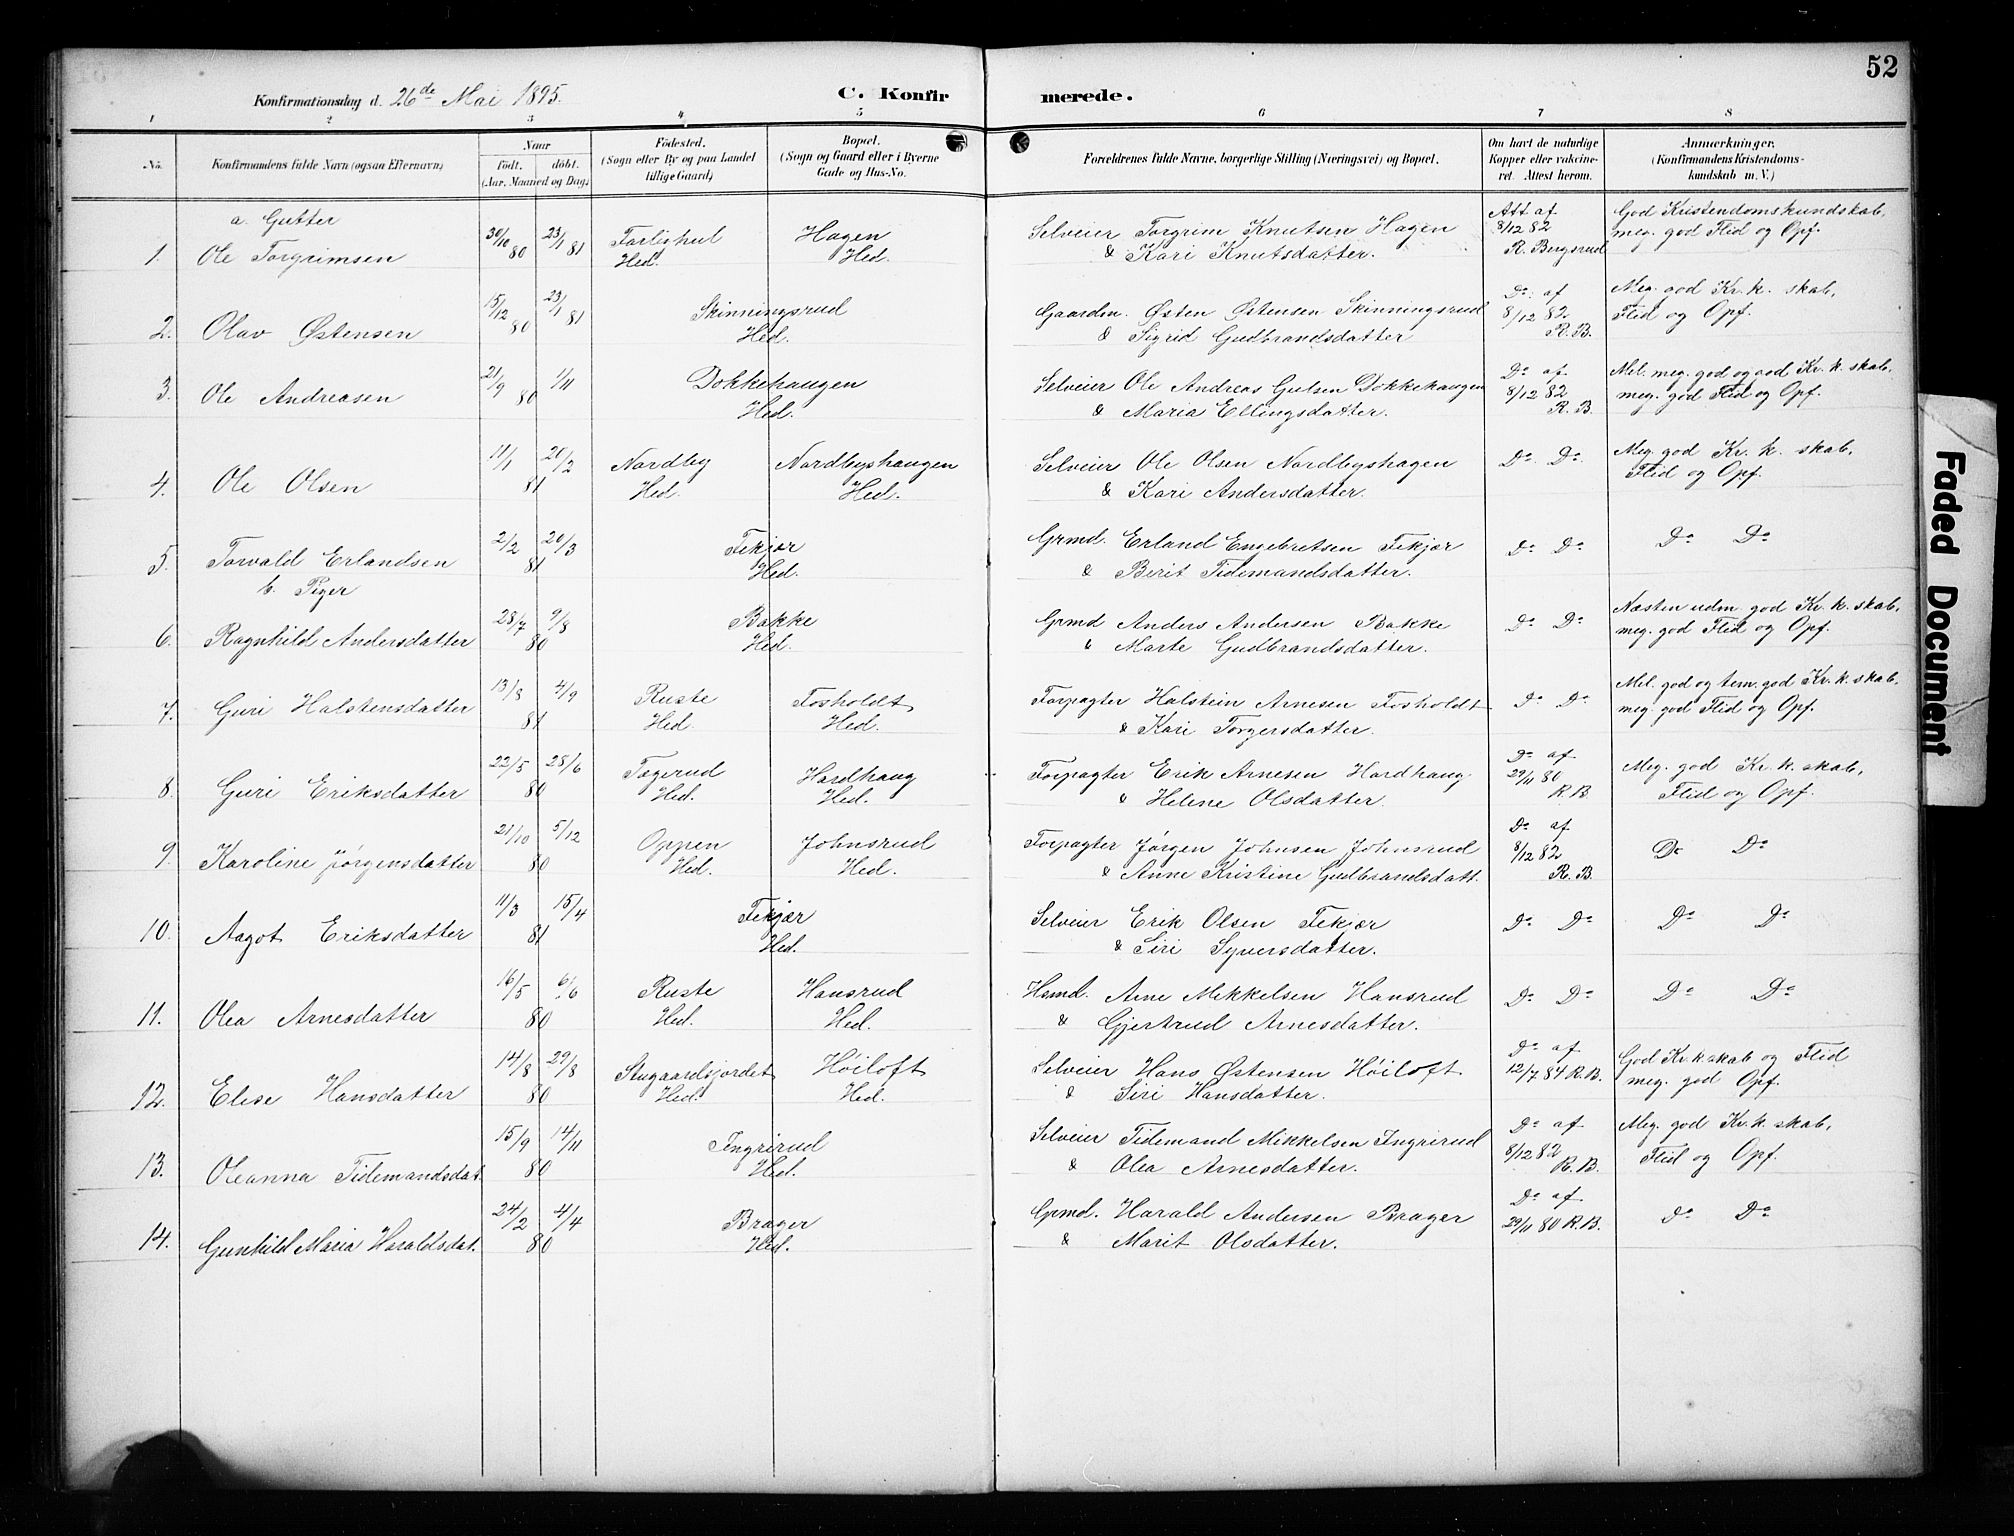 52
Konfirmationsdag d. 26de Mai 1895. C. Konfir merede.
1 2 3 4 5 6 7 8
No. Konfirmandens fulde Navn (ogsaa Efternavn) Naar født. døbt. (Aar, Maaned og Dag) Fødested. (Sogn eller By og paa Landet tillige Gaard) Bopæl. (Sogn og Gaard eller i Byerne Gade og Hus-No. Forældrenes fulde Navne, borgerlige Stilling (Næringsvei) og Bopæl. Om havt de naturlige Kopper eller vakcineret. Attest herom. Anmærkninger. (Konfirmandens Kristendomskundskab m. V.)
a. Gutter
1. Ole Torgrimsen 30/10 80 23/1 81 Hed. Hagen Hed. Selveier Torgrim Knutsen Hagen & Kari Knutsdatter. Att af 8/12 82 R. Bergsrud God Kristendomskundskab, meg. god Flid og Opf.
2. Olav Østensen 15/12 80 23/1 81 Skinningsrud Hed. Gaardm. Østen Østensen Skinningsrud & Sigrid Gudbrandsdatter Do. af 8/12 82 R. B. Meg. god Kr. k. skab, Flid og Opf.
3. Ole Andreasen 21/9 1/11 80 Dokkehaugen Hed. Selveier Ole Andreas Gulsen Dokkehaugen & Maria Ellingsdatter. Do af 8/12 82 R. B. Mel. meg. god og god Kr. k. skab, meg. god Flid og Opf.
4. Ole Olsen 11/1 20/2 81 Nordby Hed. Nordbyshaugen Hed. Selveier Ole Olsen Nordbyshagen & Kari Andersdatter. Do. Do. Meg. god Kr. k. skab, Flid og Opf.
5. Torvald Erlandsen 2/2 20/3 81 Fekjær Hed. Grmd. Erland Engebretsen Fekjær & Berit Tidemandsdatter. Do Do Do Do
b. Piger
6. Ragnhild Andersdatter 28/7 9/8 80 Bakke Hed. Grmd Anders Andersen Bakke & Marte Gudbrandsdatter. Do Do Næsten udm. god Kr. k. skab, meg. god Flid og Opf.
7. Guri Halstensdatter 13/8 4/9 81 Ruste Hed Fosholdt Hed. Forpagter Halstein Arnesen Fosholdt & Kari Torgersdatter. Do Do Mel. god og tem. god Kr. k. skab, meg. god Flid og Opf.
8. Guri Eriksdatter 22/5 28/6 80 Tøgerud Hed. Hardhaug Hed. Forpagter Erik Arnesen Hardhaug & Helene Olsdatter. Do af 29/11 80 R. B. Meg. god Kr. k. skab, Flid og Opf.
9. Karoline Jørgensdatter 21/10 5/12 80 Oppen Hed. Johnsrud Hed. Forpagter Jørgen Johnsen Johnsrud & Anne Kristine Gudbrandsdatt. Do af 8/12 82 R. B. Do Do
10. Aagot Eriksdatter 11/3 15/4 81 Fekjær Hed. Selveier Erik Olsen Fekjær & Siri Syversdatter. Do Do Do Do
11. Olea Arnesdatter 16/5 6/6 80 Ruste Hed. Hansrud Hed. Hsmd. Arne Mikkelsen Hansrud & Gjertrud Arnesdatter. Do Do Do Do
12. Elise Hansdatter 14/8 29/8 80 Stugaardsjordet Hed. Høiloft Hed. Selveier Hans Østensen Høiloft & Siri Hansdatter. Do af 12/7 84 R. B. God Kr. k skab og Flid meg. god Opf.
13. Oleanna Tidemandsdat. 15/9 14/11 80 Ingrirud Hed. Selveier Tidemand Mikkelsen Ingrirud & Olea Arnesdatter. Do af 8/12 82 R. B. Meg. god Kr. k. skab, Flid og Opf.
14. Gunhild Maria Haraldsdat. 24/2 4/4 80 Brager Hed. Grmd. Harald Andersen Brager & Marit Olsdatter. Do af 29/11 80 R. B. do Do
Faded Document